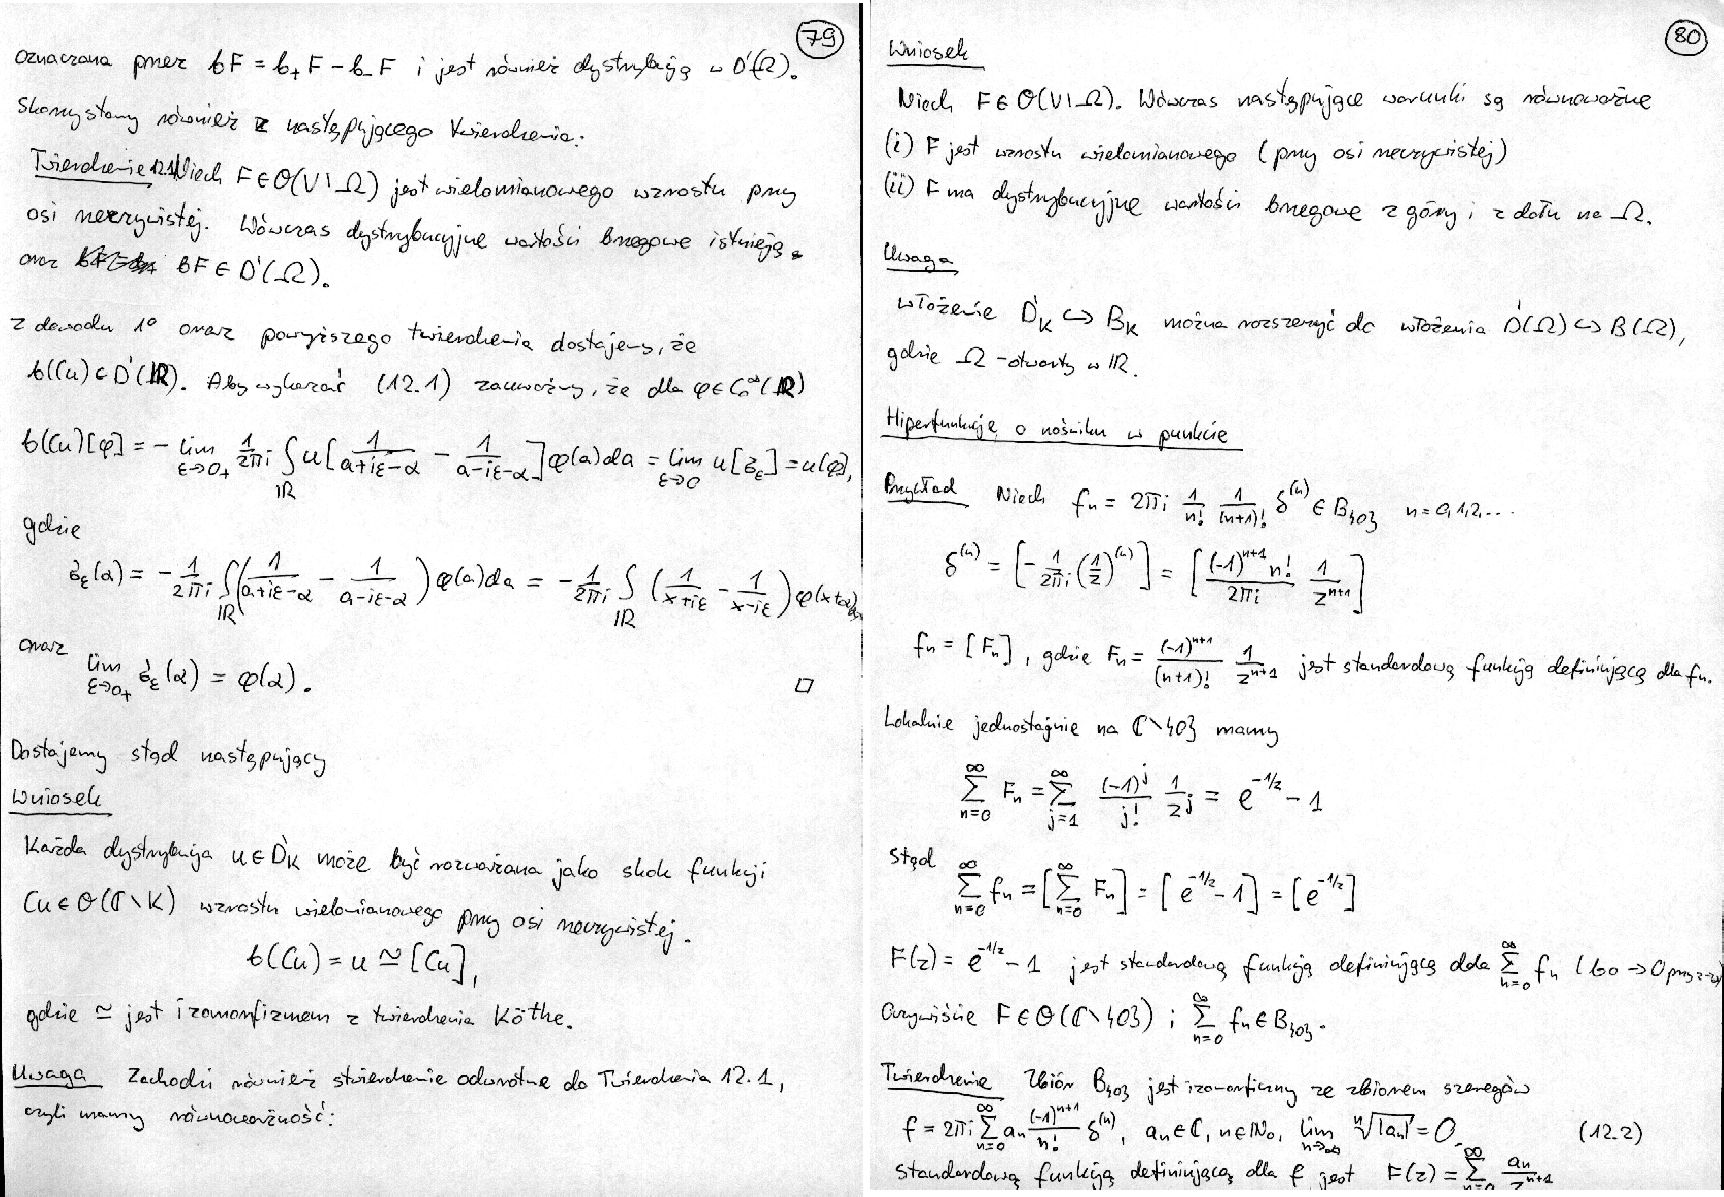 79
oznaczana przez bF = b₊F − b₋F i jest również dystrybucją w D'(Ω).
Skorzystamy również z następującego twierdzenia:
Twierdzenie 12.1 Niech F ∈ O(V\Ω) jest wielomianowego wzrostu przy
osi rzeczywistej. Wówczas dystrybucyjne wartości brzegowe istnieją
oraz bF ∈ D'(Ω).
Z dowodu 1° oraz powyższego twierdzenia dostajemy, że
b(Cu) ∈ D'(ℝ). Aby wykazać (12.1) zauważmy, że dla φ ∈ C₀^∞(ℝ)
b(Cu)[φ] = − lim_{ε→0₊} 1/(2πi) ∫_ℝ u[1/(a+iε−α) − 1/(a−iε−α)] φ(a)da = lim_{ε→0} u[σ_ε] = u[φ],
gdzie
σ_ε(α) = − 1/(2πi) ∫_ℝ (1/(a+iε−α) − 1/(a−iε−α)) φ(a)da = − 1/(2πi) ∫_ℝ (1/(x+iε) − 1/(x−iε)) φ(x+α)dx
oraz
lim_{ε→0₊} σ_ε(α) = φ(α). □
Dostajemy stąd następujący
Wniosek
Każda dystrybucja u ∈ D'_K może być rozważana jako skok funkcji
Cu ∈ O(ℂ\K) wzrostu wielomianowego przy osi rzeczywistej.
b(Cu) = u ≃ [Cu],
gdzie ≃ jest izomorfizmem z twierdzenia Köthe.
Uwaga Zachodzi również stwierdzenie odwrotne do Twierdzenia 12.1,
czyli mamy równoważność:
80
Wniosek
Niech F ∈ O(V\Ω). Wówczas następujące warunki są równoważne
(i) F jest wzrostu wielomianowego (przy osi rzeczywistej)
(ii) F ma dystrybucyjne wartości brzegowe z góry i z dołu na Ω.
Uwaga
włożenie D'_K ↪ B_K można rozszerzyć do włożenia D'(Ω) ↪ B(Ω),
gdzie Ω - otwarty w ℝ.
Hiperfunkcje o nośniku w punkcie
Przykład Niech f_n = 2πi 1/n! 1/(n+1)! δ^(n) ∈ B_{0} n = 0,1,2,...
δ^(n) = [− 1/(2πi) (1/z)^(n)] = [(-1)^{n+1} n!/(2πi) 1/z^{n+1}]
f_n = [F_n], gdzie F_n = (-1)^{n+1}/(n+1)! 1/z^{n+1} jest standardową funkcją definiującą dla f_n.
Lokalnie jednostajnie na ℂ\{0} mamy
∑_{n=0}^∞ F_n = ∑_{j=1}^∞ (-1)^j/j! 1/z^j = e^{-1/z} − 1
Stąd
∑_{n=0}^∞ f_n = [∑_{n=0}^∞ F_n] = [e^{-1/z} − 1] = [e^{-1/z}]
F(z) = e^{-1/z} − 1 jest standardową funkcją definiującą dla ∑_{n=0}^∞ f_n (bo → 0 przy z→∞)
Oczywiście F ∈ O(ℂ\{0}) i ∑_{n=0}^∞ f_n ∈ B_{0}.
Twierdzenie Zbiór B_{0} jest izomorficzny ze zbiorem szeregów
f = 2πi ∑_{n=0}^∞ a_n (-1)^{n+1}/n! δ^(n), a_n ∈ ℂ, n ∈ ℕ₀, lim_{n→∞} ⁿ√|a_n| = 0. (12.2)
standardową funkcją definiującą dla f jest F(z) = ∑_{n=0}^∞ a_n/z^{n+1}